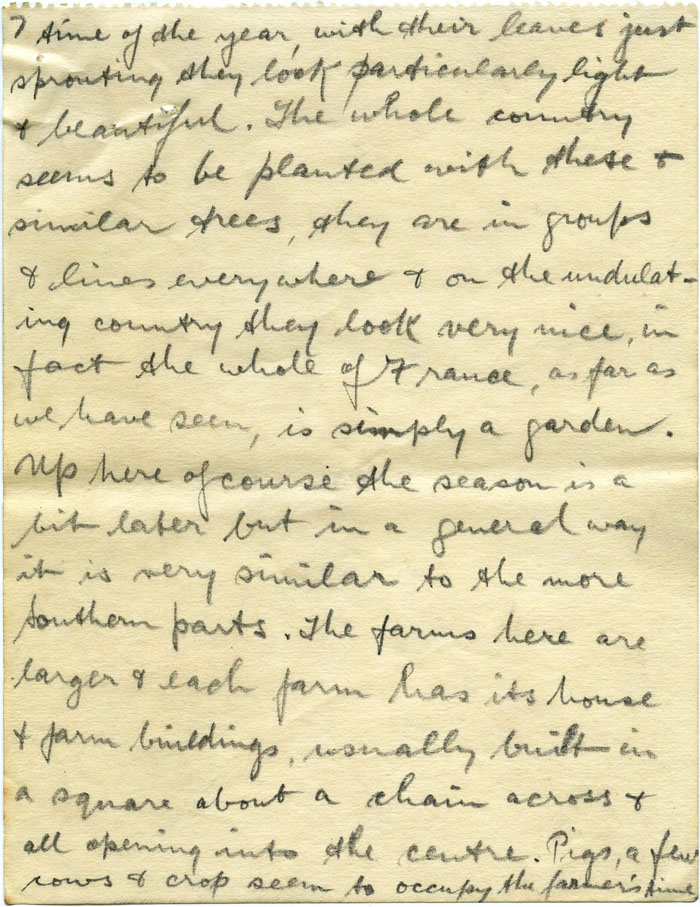 7 time of the year, with their leaves just
sprouting they look particularly light
& beautiful. The whole country
seems to be planted with these &
similar trees, they are in groups
& lines everywhere & on the undulat-
ing country they look very nice, in
fact the whole of France, as far as
we have seen, is simply a garden.
Up here of course the season is a
bit later but in a general way
it is very similar to the more
Southern parts. The farms here are
larger & each farm has its house
& farm buildings, usually built in
a square about a chain across &
all opening into the centre. Pigs, a few
cows & crop seem to occupy the farmer's time